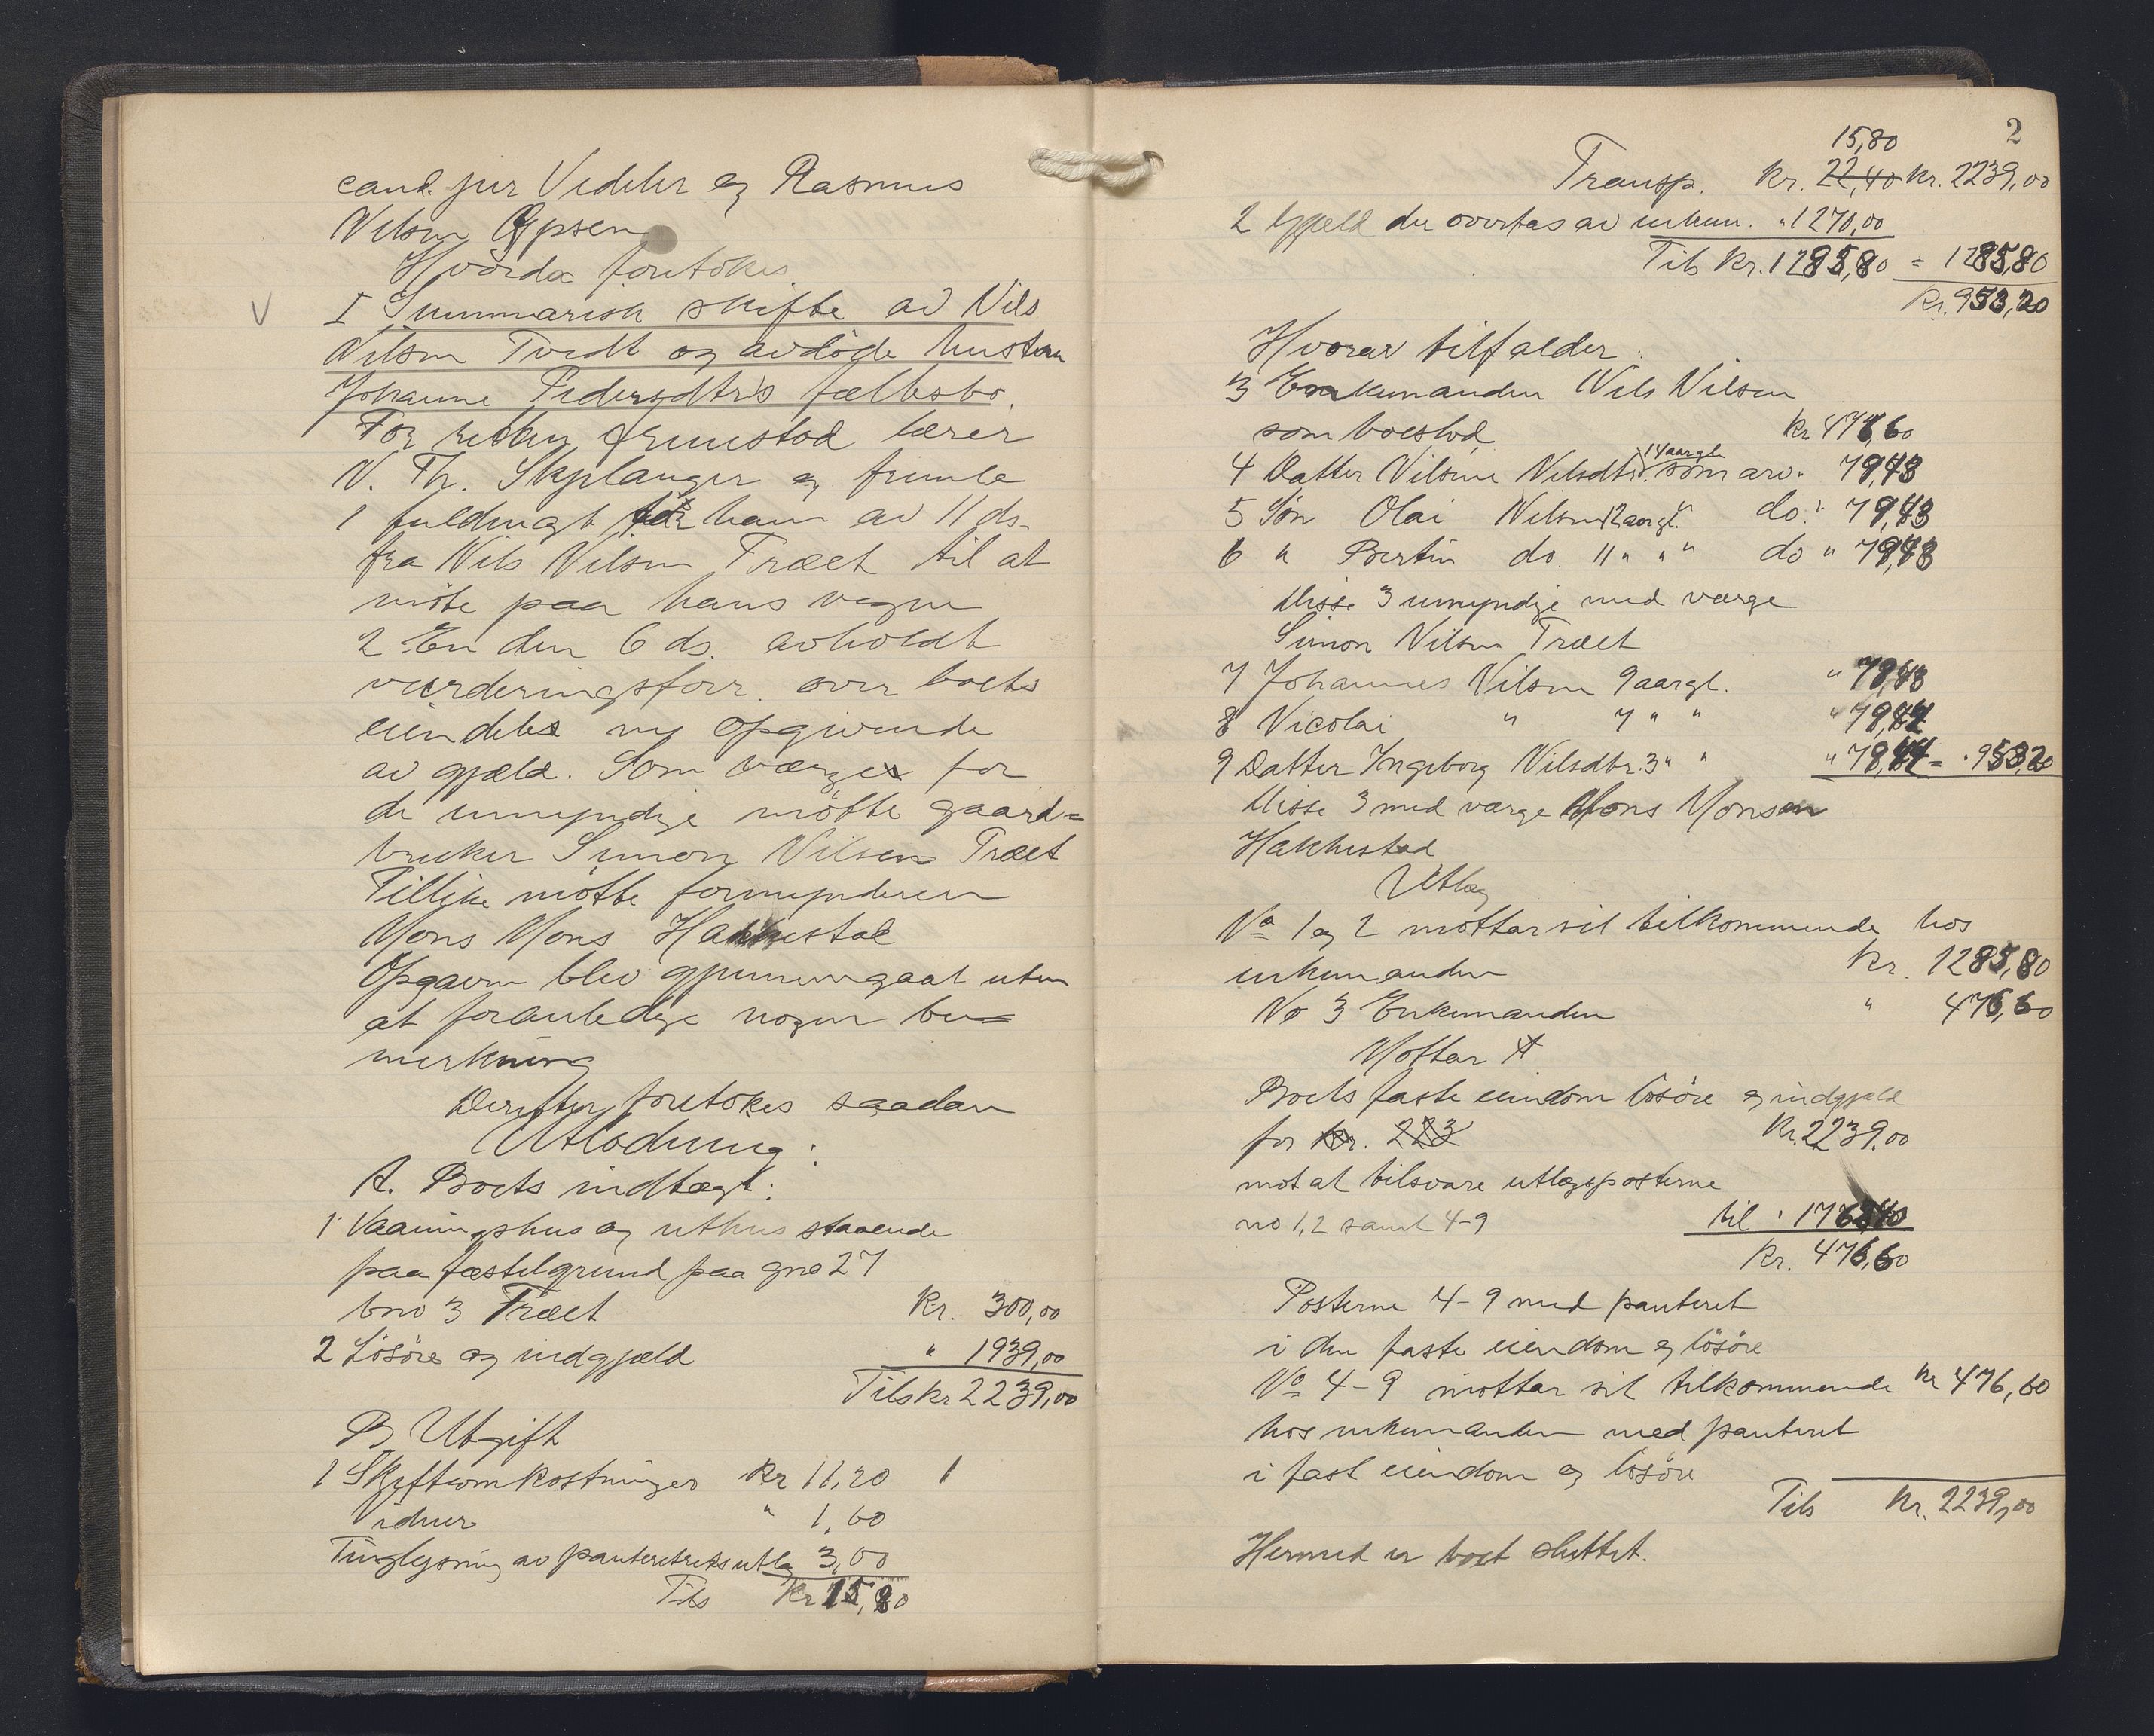 cand. jur Vedeler og Rasmus
Nilsen Gjpsen
Hvorda foretokes
V I Summarisk skifte av Nils
Nilsen Tvedt og avdöde hustru
Johanne Pedersdtr's fællesbo.
For retten fremstod lærer
N. Th. Skjelanger og fremla
1 fuldmagt for ham av 11 ds.
fra Nils Nilsen Træet til at
möte paa hans vegne
2 En den 6 ds. avholdt
vurderingsforr. over boets
eiendeler og opgivende
av gjæld. Som værger for
de umyndige mötte gaard=
bruker Simon Nilsen Træet
Tillike mötte formynderen
Mons Mons Hakkestad
Opgaven blev gjennemgaat uten
at foranledige nogen be=
merkning
Derefter foretokes saadan
Utlodning:
A. Boets indtægt:
1 Vaaningshus og uthus staaende
paa fæstelgrund paa gno 27
bno 3 Træet Kr. 300,00
2 Lösöre og indgjæld " 1939,00
Tils kr 2239,00
B Utgift
1 Skifteomkostninger Kr 11,20 1
Vidner " 1,60
Tinglysning av panteretsutlæg 3,00
Tils Kr 15,80
2
15,80
Transp. Kr. 22,40 Kr. 2239,00
2 Gjæld der overtas av enkem. " 1270,00
Tils Kr. 1285,80 = 1285,80
Kr. 953,20
Hvorav tilfalder:
3 Enkemanden Nils Nilsen
som boeslod Kr 476,60
4 Datter Nilsine Nilsdtr. 14 aargl. som arv " 79,43
5 Sön Olai Nilsen 12 aargl. " do. " 79,43
6 " Bertin do. 11 " " " do " 79,43
Disse 3 umyndige med værge
Simon Nilsen Træet
7 Johannes Nilsen 9 aargl. " 79,43
8 Nicolai " 7 " " " 79,44
9 Datter Ingeborg Nilsdtr. 3 " " " 79,44 = " 953,20
Disse 3 med værge Mons Monsen
Hakkestad
Utlæg
No 1 og 2 mottar sit tilkommende hos
enkemanden Kr. 1285,80
No 3 Enkemanden " 476,60
Mottar A
Boets faste eiendom lösöre og indgjæld
for kr. 223 Kr. 2239,00
mot at tilsvare utlægsposterne
no 1,2 samt 4-9 til " 1762,40
Kr. 476,60
Posterne 4-9 med panteret
i den faste eiendom og lösöre
No 4-9 mottar sit tilkommende kr 476,60
hos enkemanden med panteret
i fast eiendom og lösöre
Tils Kr. 2239,00
Hermed er boet sluttet.